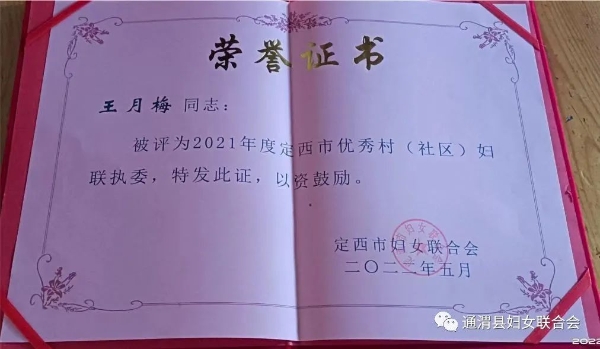 荣誉证书
王月梅 同志：
被评为2021年度定西市优秀村（社区）妇
联执委，特发此证，以资鼓励。
定西市妇女联合会
二〇二二年五月
通渭县妇女联合会